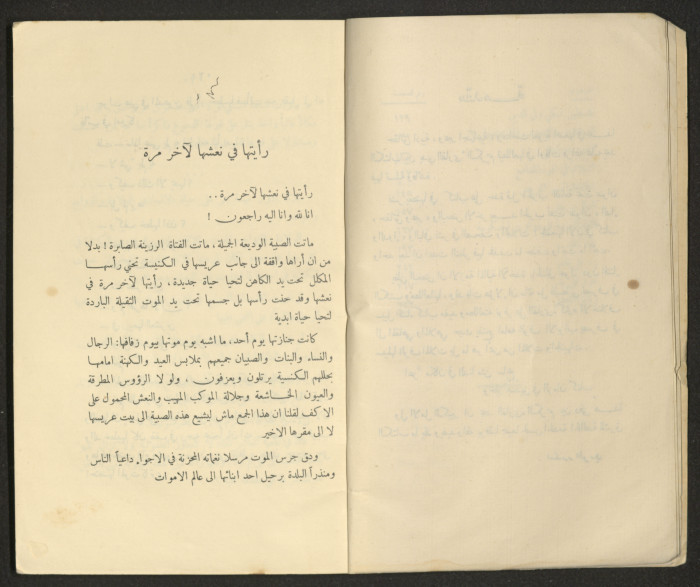 رأيتها في نعشها لآخر مرة
رأيتها في نعشها لآخر مرة . .
انا لله وانا اليه راجعون !
ماتت الصبية الوديعة الجميلة ، ماتت الفتاة الرزينة الصابرة ! بدلا
من ان أراها واقفة الى جانب عريسها في الكنيسة تحني رأسهـا
المكلل تحت يد الكاهن لتحيا حياة جديدة ، رأيتها لآخر مرة في
نعشها وقد حفت رأسها بل جسمها تحت يد الموت الثقيلة الباردة
لتحيا حياة ابدية
كانت جنازتها يوم أحد، ما اشبه يوم موتها بيوم زفافها: الرجال
والنساء والبنات والصبيان جميعهم بملابس العيد والكهنة امامها
بحللهم الكنسية يرتلون ويعزفون ، ولو لا الرؤوس المطرقة
والعيون الخاشعة وجلالة الموكب المهيب والنعش المحمول على
الاكف لقلنا ان هذا الجمع ماش ليشيع هذه الصبية الى بيت عريسها
لا الى مقرها الاخير
ودق جرس الموت مرسلا نغماته المحزنة في الاجواء داعياً الناس
ومنذراً البلدة برحيل احد ابنائها الى عالم الاموات